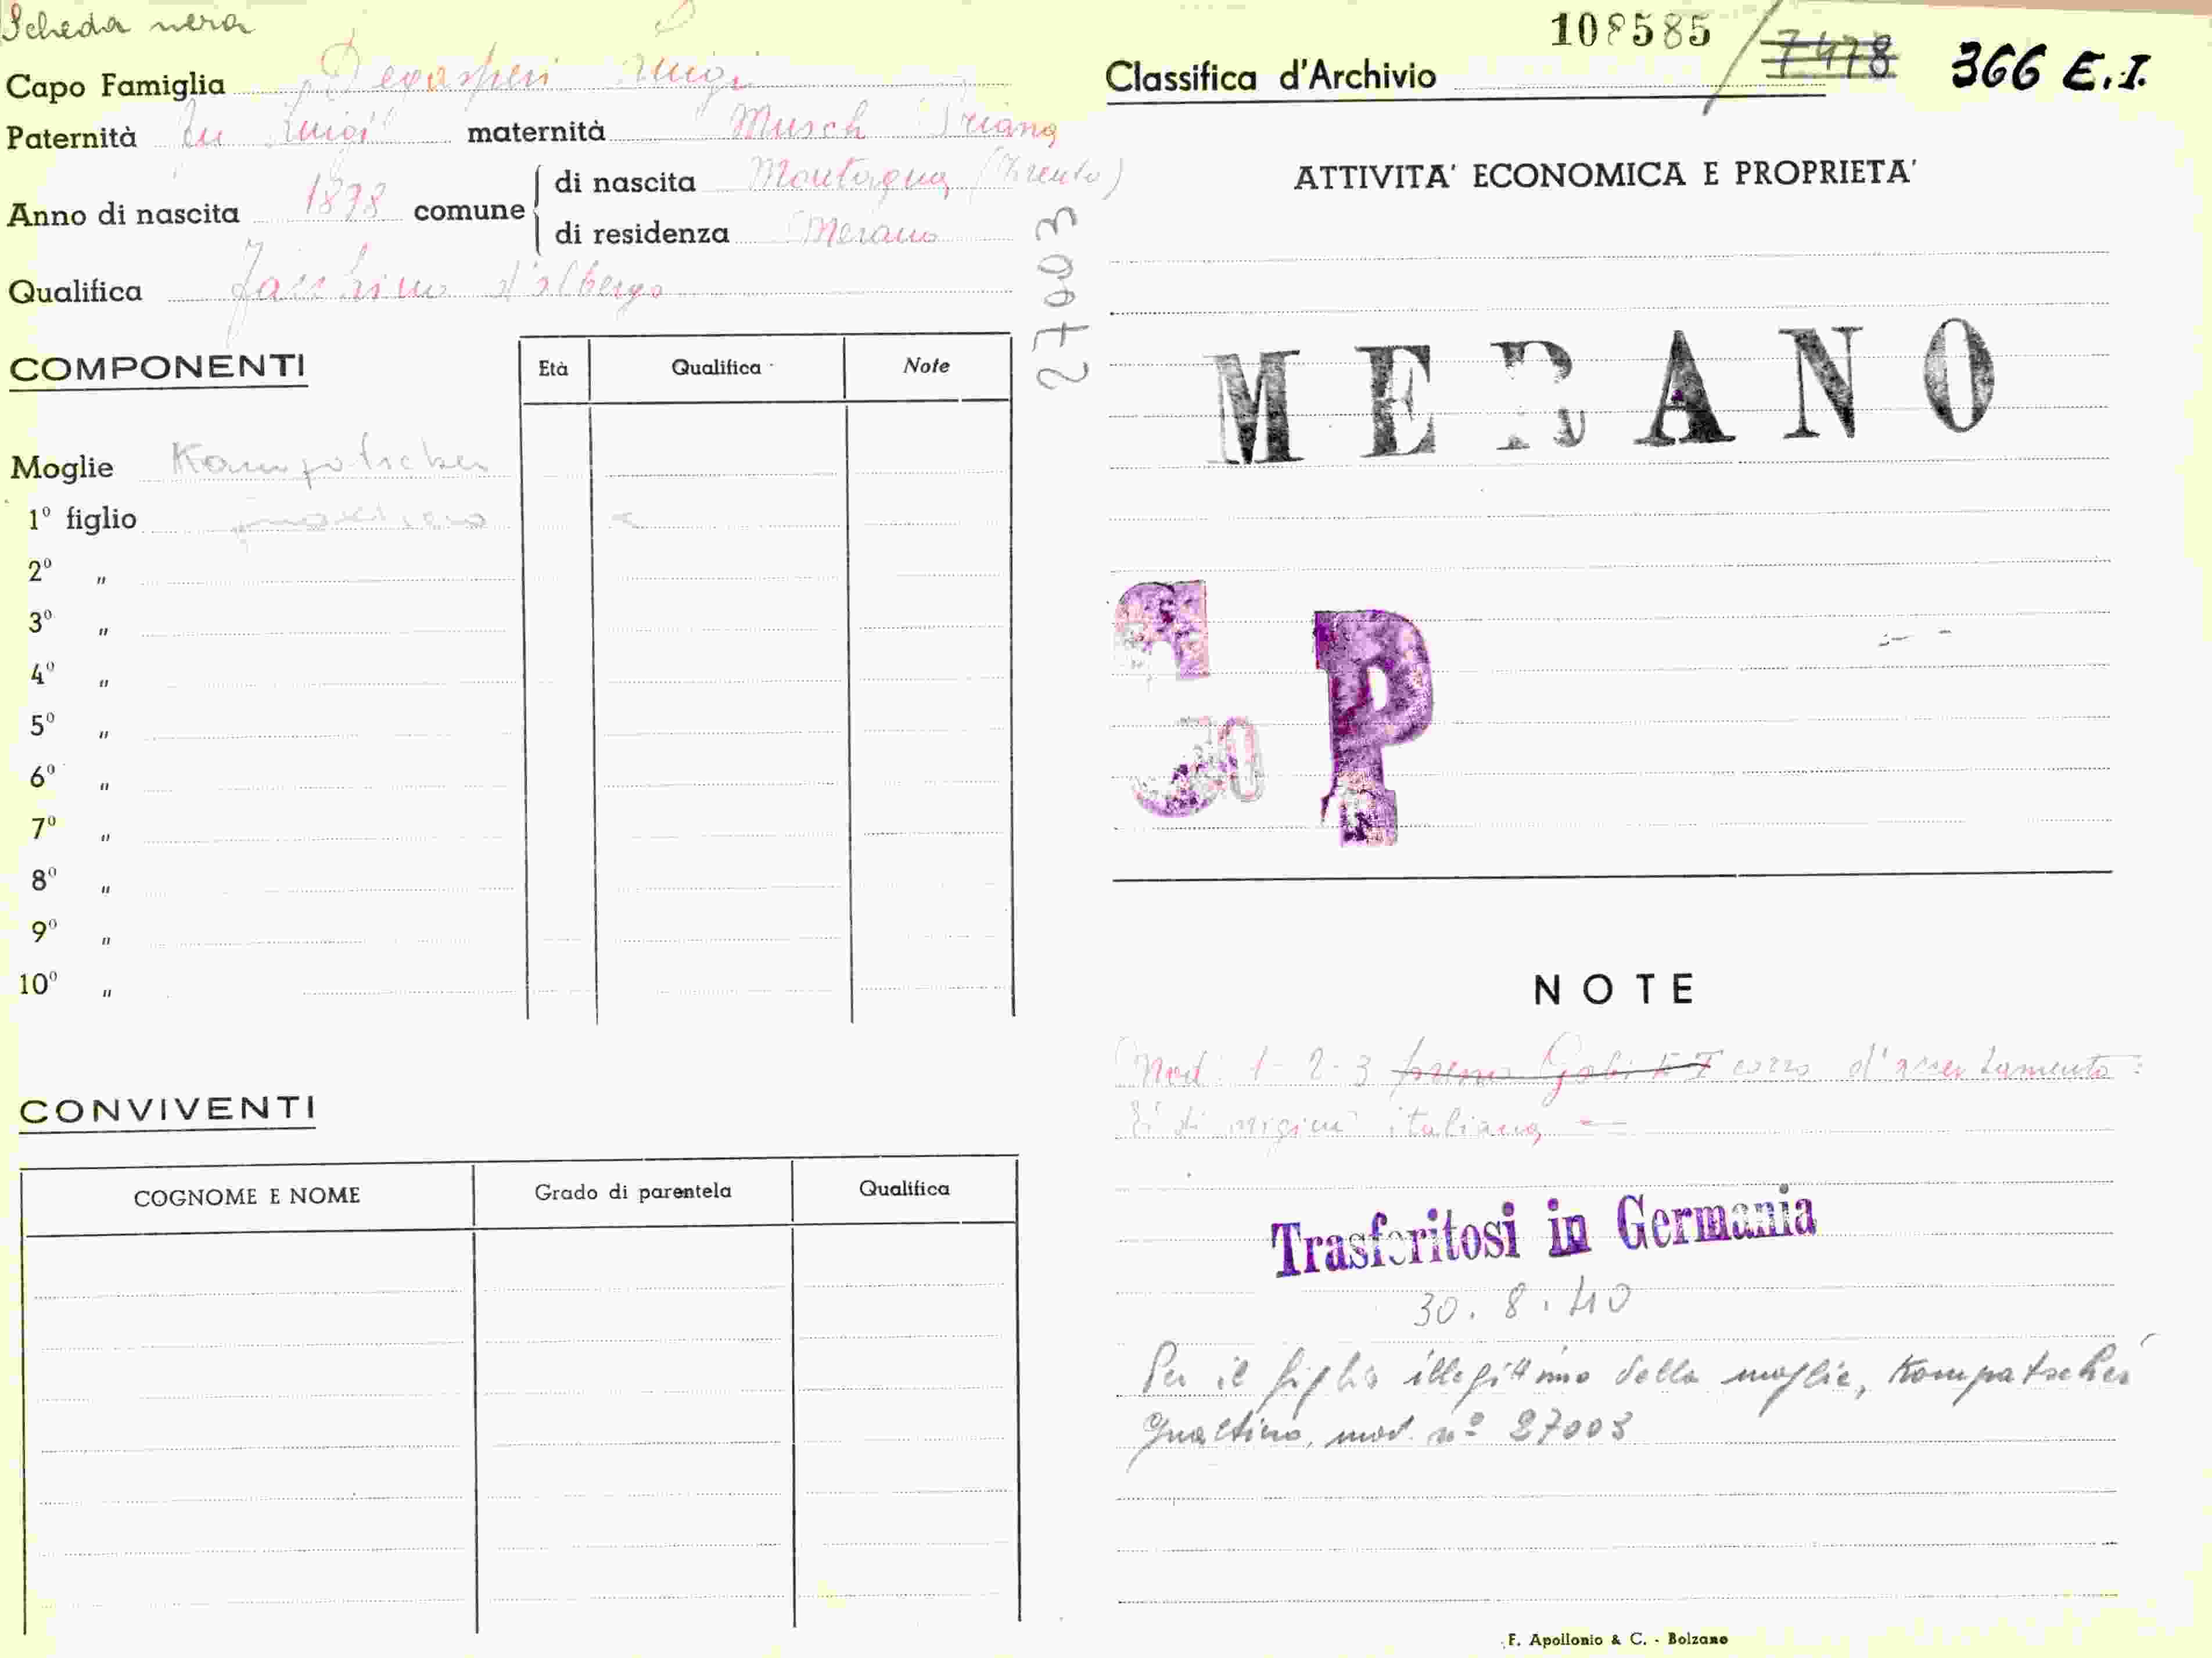 Scheda nera
Capo Famiglia Degasperi Luigi
Paternità fu Luigi maternità Musch
Anno di nascita 1898 comune di nascita Montagna (Trento)
di residenza Merano
Qualifica Facchino d'albergo
COMPONENTI
Età Qualifica Note
Moglie Kompatscher
1º figlio
2º "
3º "
4º "
5º "
6º "
7º "
8º "
9º "
10º "
CONVIVENTI
COGNOME E NOME Grado di parentela Qualifica
27003
108585 7478 366 E.I.
Classifica d'Archivio
ATTIVITA' ECONOMICA E PROPRIETA'
MERANO
P
NOTE
Mod. 1-2-3 corso d'accertamento
È di origine italiana
Trasferitosi in Germania
30.8.40
Per il figlio illegittimo della moglie, Kompatscher
mod. nº 27003
F. Apollonio & C. - Bolzano